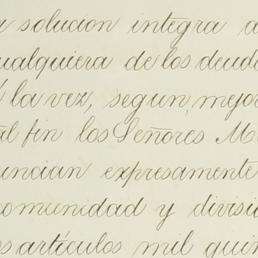 solucion integra a
ualquiera de los deud
la vez, segun mejor
al fin los Señores M
uncian expresamente
comunidad y divisi
es artículos mil quin